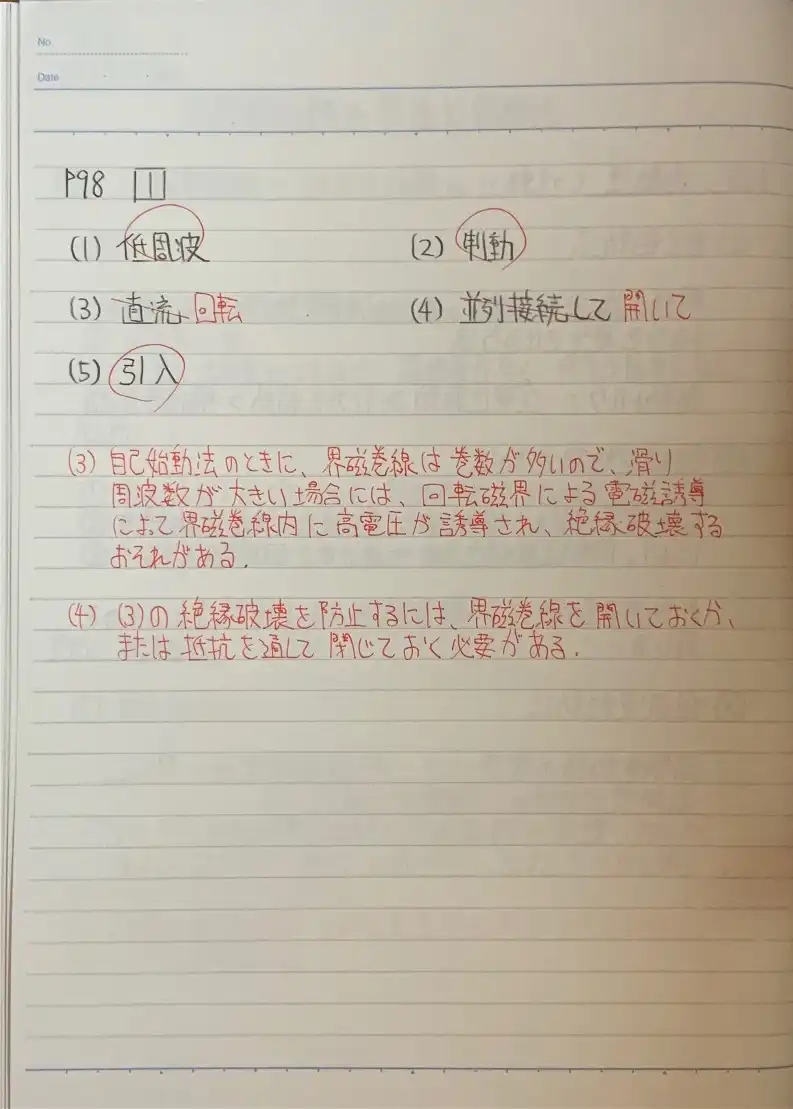 No.
Date
P98 1
(1) 低周波 (2) 制動
(3) 直流 回転 (4) 並列接続して 開いて
(5) 引入
(3) 自己始動法のときに、界磁巻線は巻数が多いので、滑り
周波数が大きい場合には、回転磁界による電磁誘導
によって界磁巻線内に高電圧が誘導され、絶縁破壊する
おそれがある.
(4) (3)の絶縁破壊を防止するには、界磁巻線を開いておくか、
または抵抗を通して閉じておく必要がある.